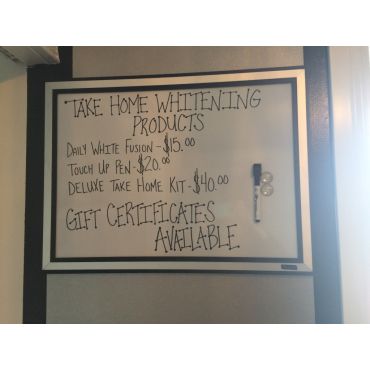 TAKE HOME WHITENING
PRODUCTS
DAILY WHITE FUSION - $15.00
TOUCH UP PEN - $20.00
DELUXE TAKE HOME KIT - $40.00
GIFT CERTIFICATES
AVAILABLE